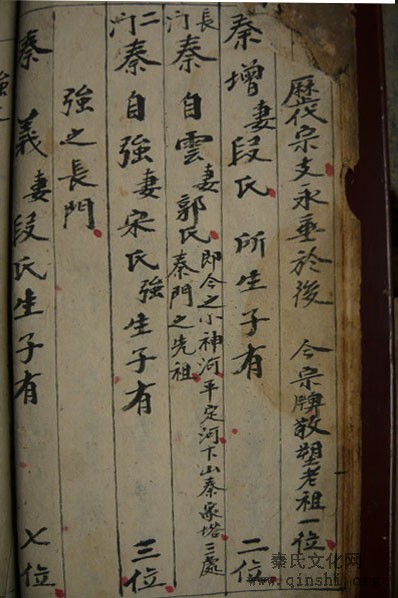 歷代宗支永垂於後 今宗牌敬塑老祖一位
秦增妻段氏 所生子有 二位
長門 秦自雲妻郭氏 即今之小神河平定河下山秦家塔三處秦門之先祖
二門 秦自強妻宋氏強生子有 三位
強之長門
秦義妻段氏生子有 七位
秦氏文化网
www.qinshi.